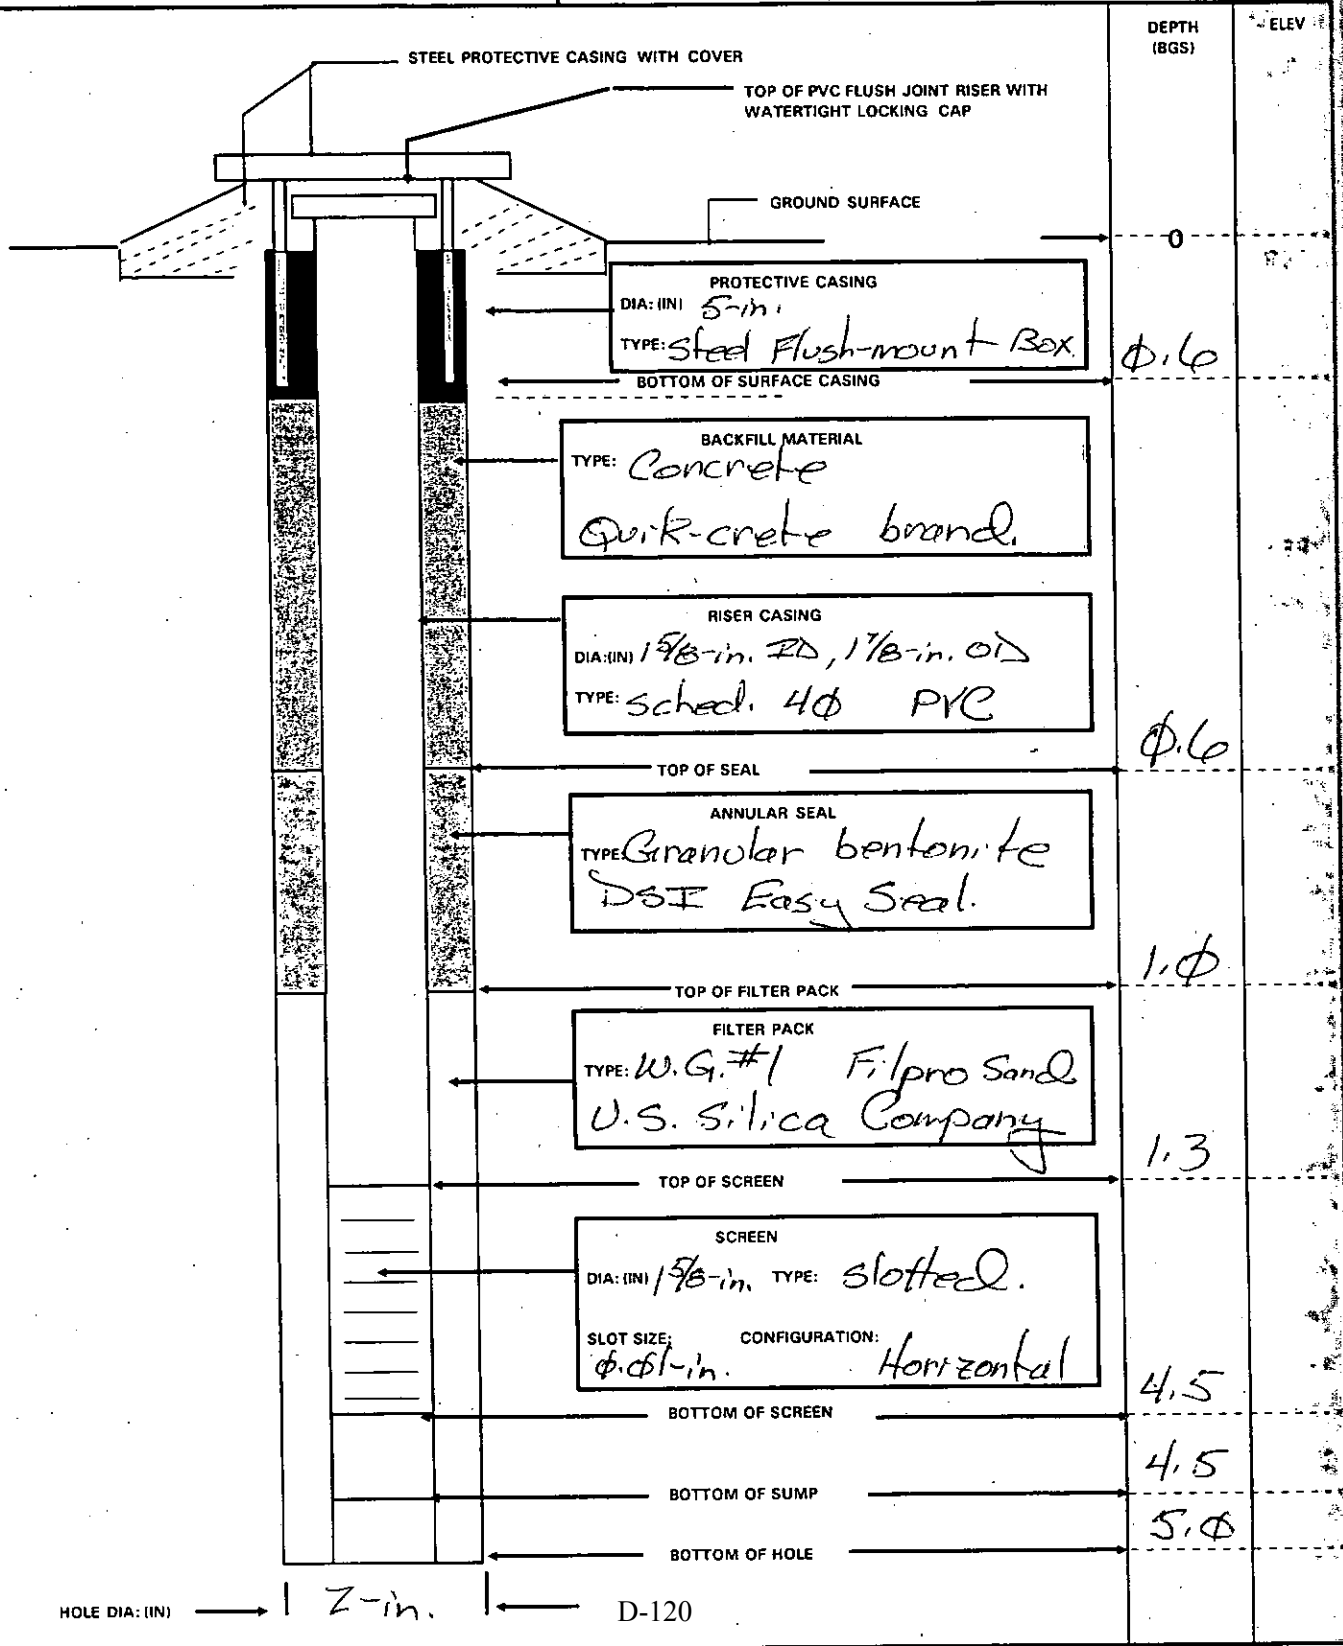 DEPTH (BGS)
ELEV
STEEL PROTECTIVE CASING WITH COVER
TOP OF PVC FLUSH JOINT RISER WITH
WATERTIGHT LOCKING CAP
GROUND SURFACE
0
PROTECTIVE CASING
DIA: (IN) 5-in.
TYPE: Steel Flush-mount Box.
BOTTOM OF SURFACE CASING
Ø.6
BACKFILL MATERIAL
TYPE: Concrete
Quik-crete brand.
RISER CASING
DIA:(IN) 1 5/8-in. ID, 1 7/8-in. OD
TYPE: sched. 4Ø PVC
TOP OF SEAL
Ø.6
ANNULAR SEAL
TYPE: Granular bentonite
DSI Easy Seal.
TOP OF FILTER PACK
1.Ø
FILTER PACK
TYPE: W.G. #1 Filpro Sand
U.S. Silica Company
TOP OF SCREEN
1.3
SCREEN
DIA: (IN) 1 5/8-in. TYPE: slotted.
SLOT SIZE: CONFIGURATION:
Ø.Ø1-in. Horizontal
BOTTOM OF SCREEN
4.5
BOTTOM OF SUMP
4.5
BOTTOM OF HOLE
5.Ø
HOLE DIA: (IN) 2-in.
D-120